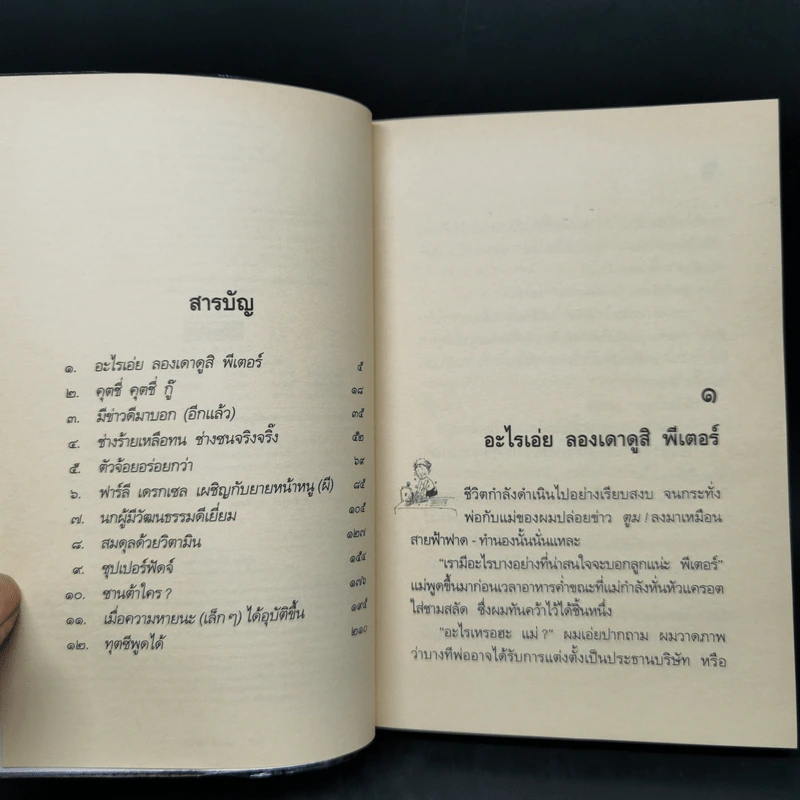 สารบัญ
๑. อะไรเอ่ย ลองเดาดูสิ พีเตอร์ ๕
๒. คุตชี่ คุตชี่ กู๊ ๑๘
๓. มีข่าวดีมาบอก (อีกแล้ว) ๓๕
๔. ช่างร้ายเหลือทน ช่างซนจริงจริ๊ง ๕๒
๕. ตัวจ้อยอร่อยกว่า ๖๙
๖. ฟาร์ลี เดรกเซล เผชิญกับยายหน้าหนู (ผี) ๘๕
๗. นกผู้มีวัฒนธรรมดีเยี่ยม ๑๐๕
๘. สมดุลด้วยวิตามิน ๑๒๗
๙. ซุปเปอร์ฟัดจ์ ๑๕๔
๑๐. ซานต้าใคร ? ๑๗๖
๑๑. เมื่อความหายนะ (เล็ก ๆ) ได้อุบัติขึ้น ๑๙๕
๑๒. ทุตซีพูดได้ ๒๑๐
๑
อะไรเอ่ย ลองเดาดูสิ พีเตอร์
ชีวิตกำลังดำเนินไปอย่างเรียบสงบ จนกระทั่ง
พ่อกับแม่ของผมปล่อยข่าว ตูม ! ลงมาเหมือน
สายฟ้าฟาด - ทำนองนั้นนั่นแหละ
"เรามีอะไรบางอย่างที่น่าสนใจจะบอกลูกแน่ะ พีเตอร์"
แม่พูดขึ้นมาก่อนเวลาอาหารค่ำขณะที่แม่กำลังหั่นหัวแครอต
ใส่ชามสลัด ซึ่งผมทันคว้าไว้ได้ชิ้นหนึ่ง
"อะไรเหรอฮะ แม่ ?" ผมเอ่ยปากถาม ผมวาดภาพ
ว่าบางทีพ่ออาจได้รับการแต่งตั้งเป็นประธานบริษัท หรือ